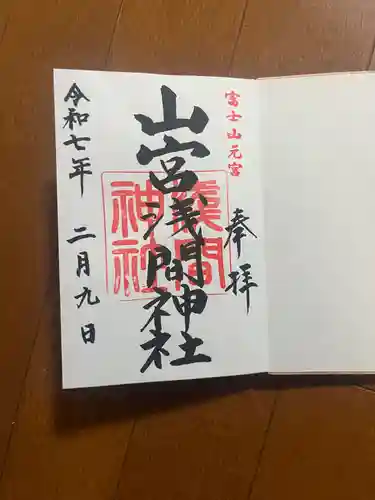 富士山元宮
奉拝
山宮浅間神社
淺間
神社
令和七年 二月九日